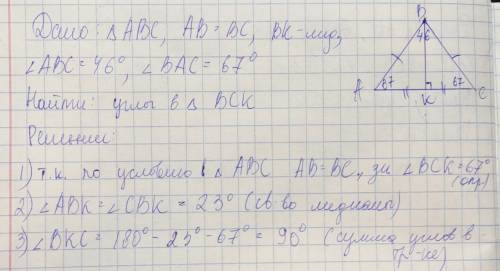 Дано: △ABC, AB=BC, BK-мед,
∠ABC=46°, ∠BAC=67°
Найти: углы в △ BCK
Решение:
1) т.к. по условию в △ ABC AB=BC, зн ∠BCK=67°
(опр)
2) ∠ABK=∠CBK = 23° (св-во медианы)
3) ∠BKC = 180°-23°-67° = 90° (сумма углов в
тр-ке)
B
46
A
67
K
67
C